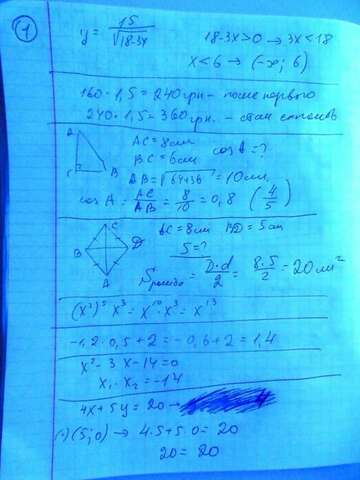 1
y = 15/√18-3x
18-3x>0 → 3x<18
x<6 → (-∞; 6)
160 · 1,5 = 240 грн - после первого
240 · 1,5 = 360 грн. - стал стоить
A
C
B
AC = 8см
BC = 6см
cos A = ?
AB = √64+36 = 10см
cos A = AC/AB = 8/10 = 0,8 (4/5)
C
B
D
A
AC = 8см
BD = 5см
S = ?
Sромба = D·d/2 = 8·5/2 = 20 см²
(x²)⁵ x³ = x¹⁰ · x³ = x¹³
-1,2 · 0,5 + 2 = -0,6 + 2 = 1,4
x² - 3x - 14 = 0
x₁ · x₂ = -14
4x + 5y = 20 →
(·) (5; 0) → 4·5 + 5·0 = 20
20 = 20